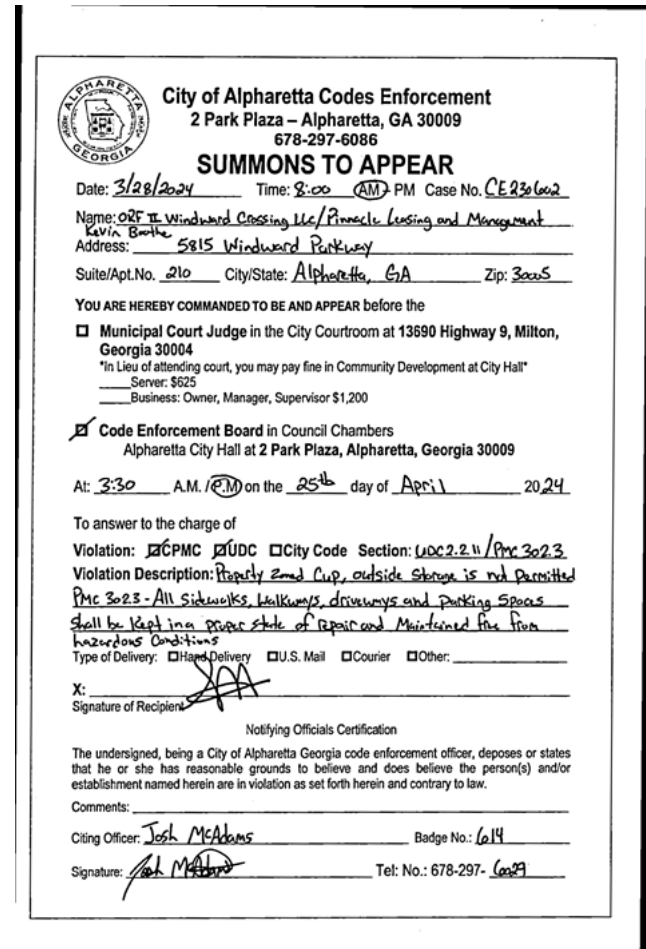 ALPHARETTA
GEORGIA
City of Alpharetta Codes Enforcement
2 Park Plaza – Alpharetta, GA 30009
678-297-6086
SUMMONS TO APPEAR
Date: 3/28/2024 Time: 8:00 AM PM Case No. CE230602
Name: ORF II Windward Crossing LLC/Pinnacle Leasing and Management
Kevin Boothe
Address: 5815 Windward Parkway
Suite/Apt.No. 210 City/State: Alpharetta, GA Zip: 30005
YOU ARE HEREBY COMMANDED TO BE AND APPEAR before the
☐ Municipal Court Judge in the City Courtroom at 13690 Highway 9, Milton,
Georgia 30004
*In Lieu of attending court, you may pay fine in Community Development at City Hall*
_____Server: $625
_____Business: Owner, Manager, Supervisor $1,200
☑ Code Enforcement Board in Council Chambers
Alpharetta City Hall at 2 Park Plaza, Alpharetta, Georgia 30009
At: 3:30 A.M. / P.M on the 25th day of April 2024
To answer to the charge of
Violation: ☑CPMC ☑UDC ☐City Code Section: UDC 2.2.11/PMC 302.3
Violation Description: Property zoned Cup, outside storage is not Permitted
PMC 302.3 - All Sidewalks, walkways, driveways and parking spaces
shall be kept in a proper state of repair and Maintained free from
hazardous Conditions
Type of Delivery: ☐Hand Delivery ☐U.S. Mail ☐Courier ☐Other:
X:
Signature of Recipient
Notifying Officials Certification
The undersigned, being a City of Alpharetta Georgia code enforcement officer, deposes or states
that he or she has reasonable grounds to believe and does believe the person(s) and/or
establishment named herein are in violation as set forth herein and contrary to law.
Comments:
Citing Officer: Josh McAdams Badge No.: 614
Signature: Josh McAdams Tel: No.: 678-297-6029